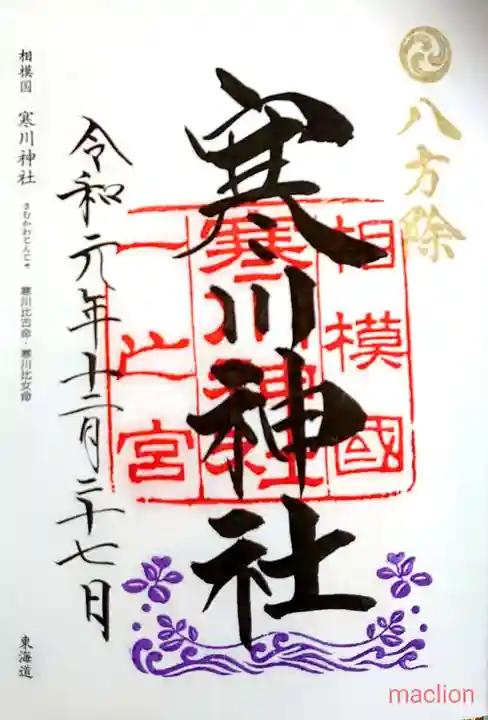 八方除
相模國
寒川神社
一之宮
寒川神社
令和元年十二月二十七日
相模国 寒川神社 さむかわじんじゃ 寒川比古命・寒川比女命
東海道
maclion